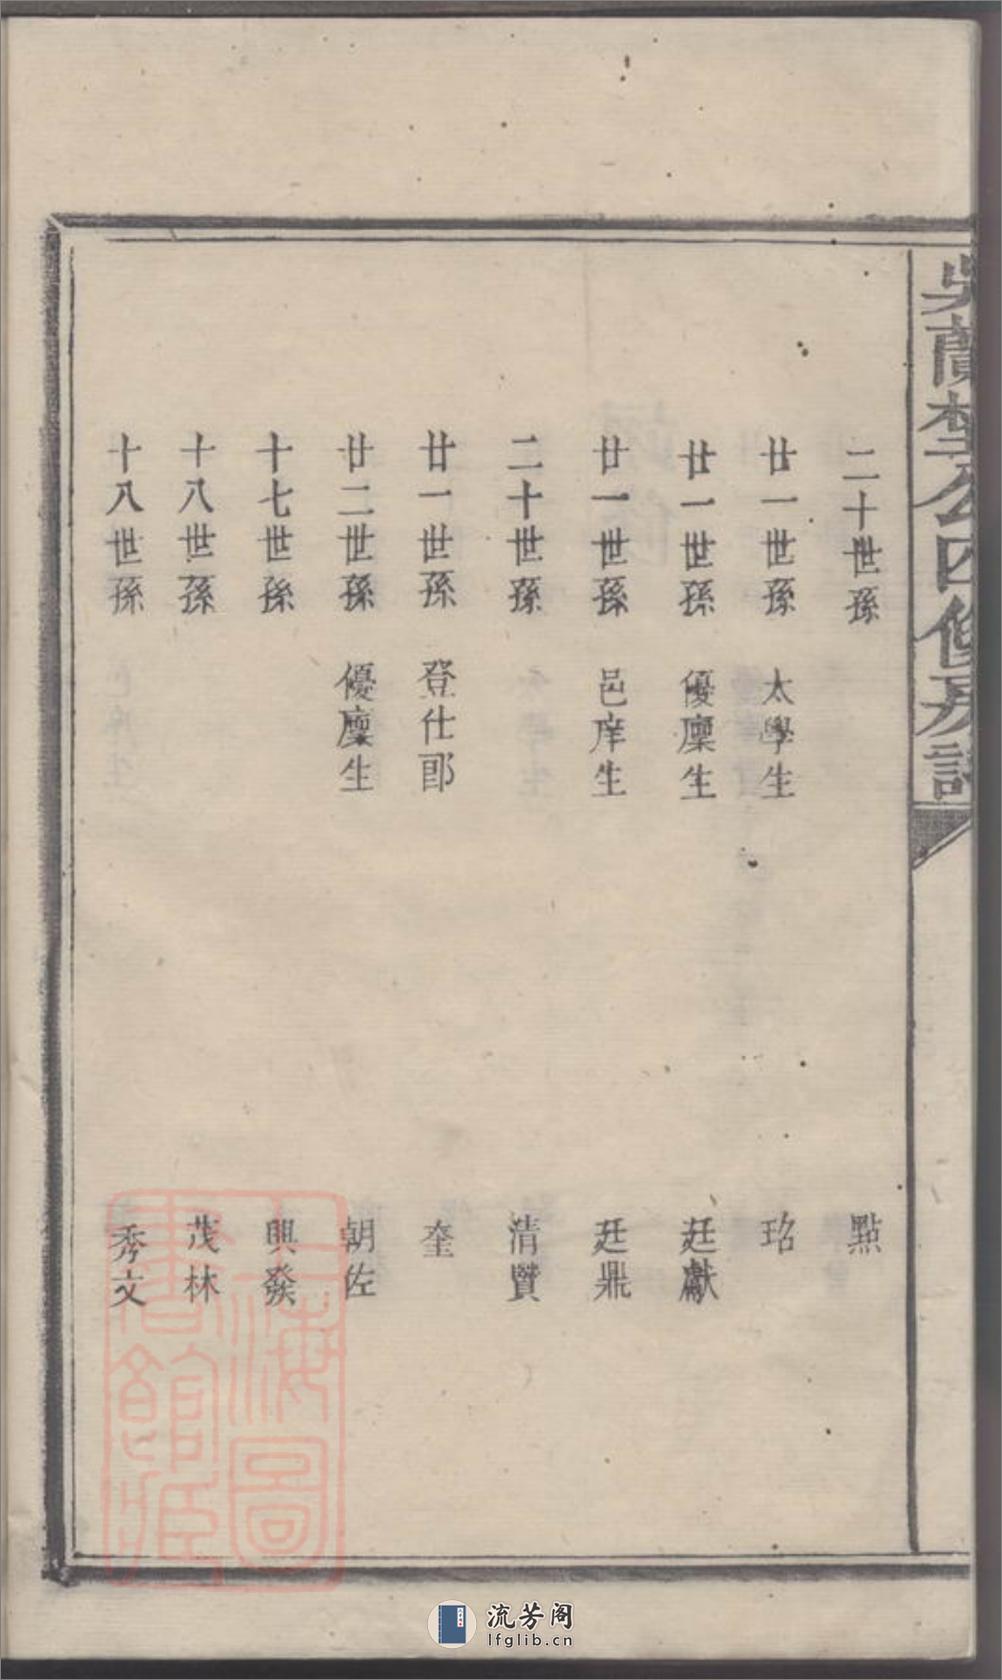 吳蘭埜公四修房譜
二十世孫 點
廿一世孫 太學生 玿
廿一世孫 優廩生 廷獻
廿一世孫 邑庠生 廷鼎
二十世孫 清贊
廿一世孫 登仕郎 奎
廿二世孫 優廩生 朝佐
十七世孫 興發
十八世孫 茂林
十八世孫 秀文
上海圖書館藏
流芳阁
lfglib.cn